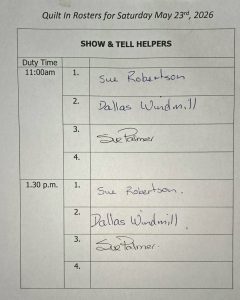 Quilt In Rosters for Saturday May 23rd, 2026
SHOW & TELL HELPERS
Duty Time
11:00am 1. Sue Robertson
2. Dallas Windmill
3. Sue Palmer
4.
1.30 p.m. 1. Sue Robertson.
2. Dallas Windmill.
3. Sue Palmer.
4.